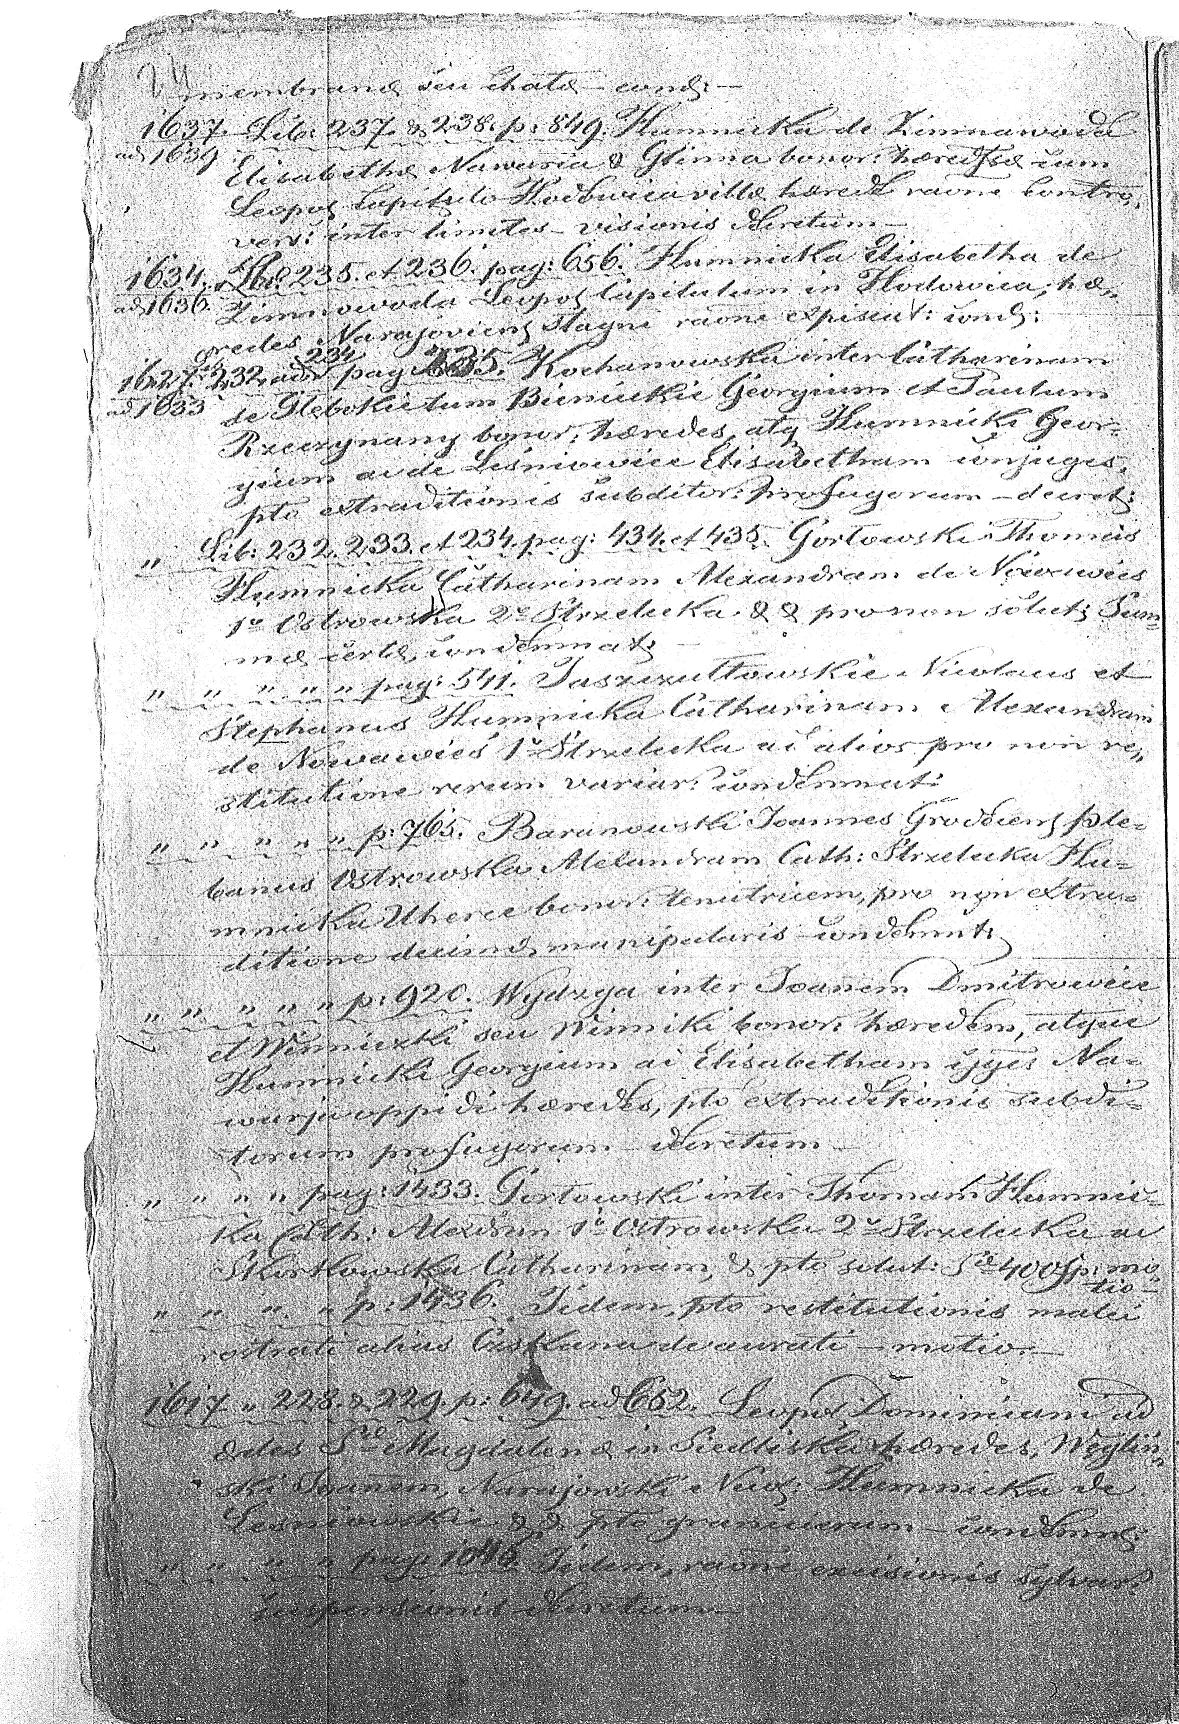 24
membranæ seu chatæ cond: —
1637 Lib: 237 & 238. p: 849. Humnicka de Zimnawoda
ad 1639
Elisabetha Nawaria & Glinna bonor: hæred cum
Leopo Capitulo Hodowica villæ hæred raõne contro„
vers: inter limites visionis decretum —
1634. Lib: 235. et 236. pag: 656. Humnicka Elisabetha de
ad 1636. Zimnowoda Leopol Capitulum in Hodowica, hæ„
redes Narajoviens Stagni raõne expiscat: cond:
1627. 232 ad 234 pag 635. Kochanowska inter Catharinam
ad 1633 de Głębokie tum Bienieckie Georgium et Paulum
Rzeczynany bonor: hæredes, atq Humnicki Geor-
gium ac de Leśniowice Elisabetham conjuges,
pto extraditionis subditor: profugorum — decret:
„ Lib: 232. 233. et 234. pag: 434. et 435. Gortowski Thomas
Humnicka Catharinam Alexandram de Nowawies
1º Ostrowska 2º Strzelecka & & pro non solut Sum
mæ certæ condemnat
„ „ „ „ „ pag: 541. Jaszczułtowskie Nicolaus et
Stephanus Humnicka Catharinam Alexandram
de Nowawieś 1º Strzelecka ac alios pro non re„
stitutione rerum variar: condemnat:
„ „ „ „ „ p: 765. Baranowski Joannes Grodziens ple-
banus Ostrowska Alexandram Cath: Strzelecka Hu-
mnicka Uherce bonor: tenutricem, pro non extra-
ditione decimæ manipularis condemnat
„ „ „ „ „ p: 920. Wydzga inter Joanem Dmitrowice
et Winniczki seu Winniki bonor: hæredem, atque
Humnicki Georgium ac Elisabetham cjges Na-
warja oppidi hæredes, pto extraditionis subdi-
torum profugorum decretum —
„ „ „ „ pag: 1433. Gortowski inter Thomam Humnic-
ka Cath: Alexdram 1º Ostrowska 2º Strzelecka ac
Skorkowska Catharinam, & pto solut: 400 mo
tio-
„ „ „ „ p: 1436. Iidem, pto restitutionis malei
rostrati alias Czekana deaurati — motio. —
1617 „ 228. & 229. p: 649. ad 652. Leopol Dominicani ad
ædes Magdalenæ in Siedliska hæredes, Węgliń„
ski Joanem, Narajowski Humnicka de
Leśniowskie & & pto granicierum — condemn:
„ „ „ „ pag: 1046. Iidem, raõne excisionis sylvar:
suspensionis decretum —